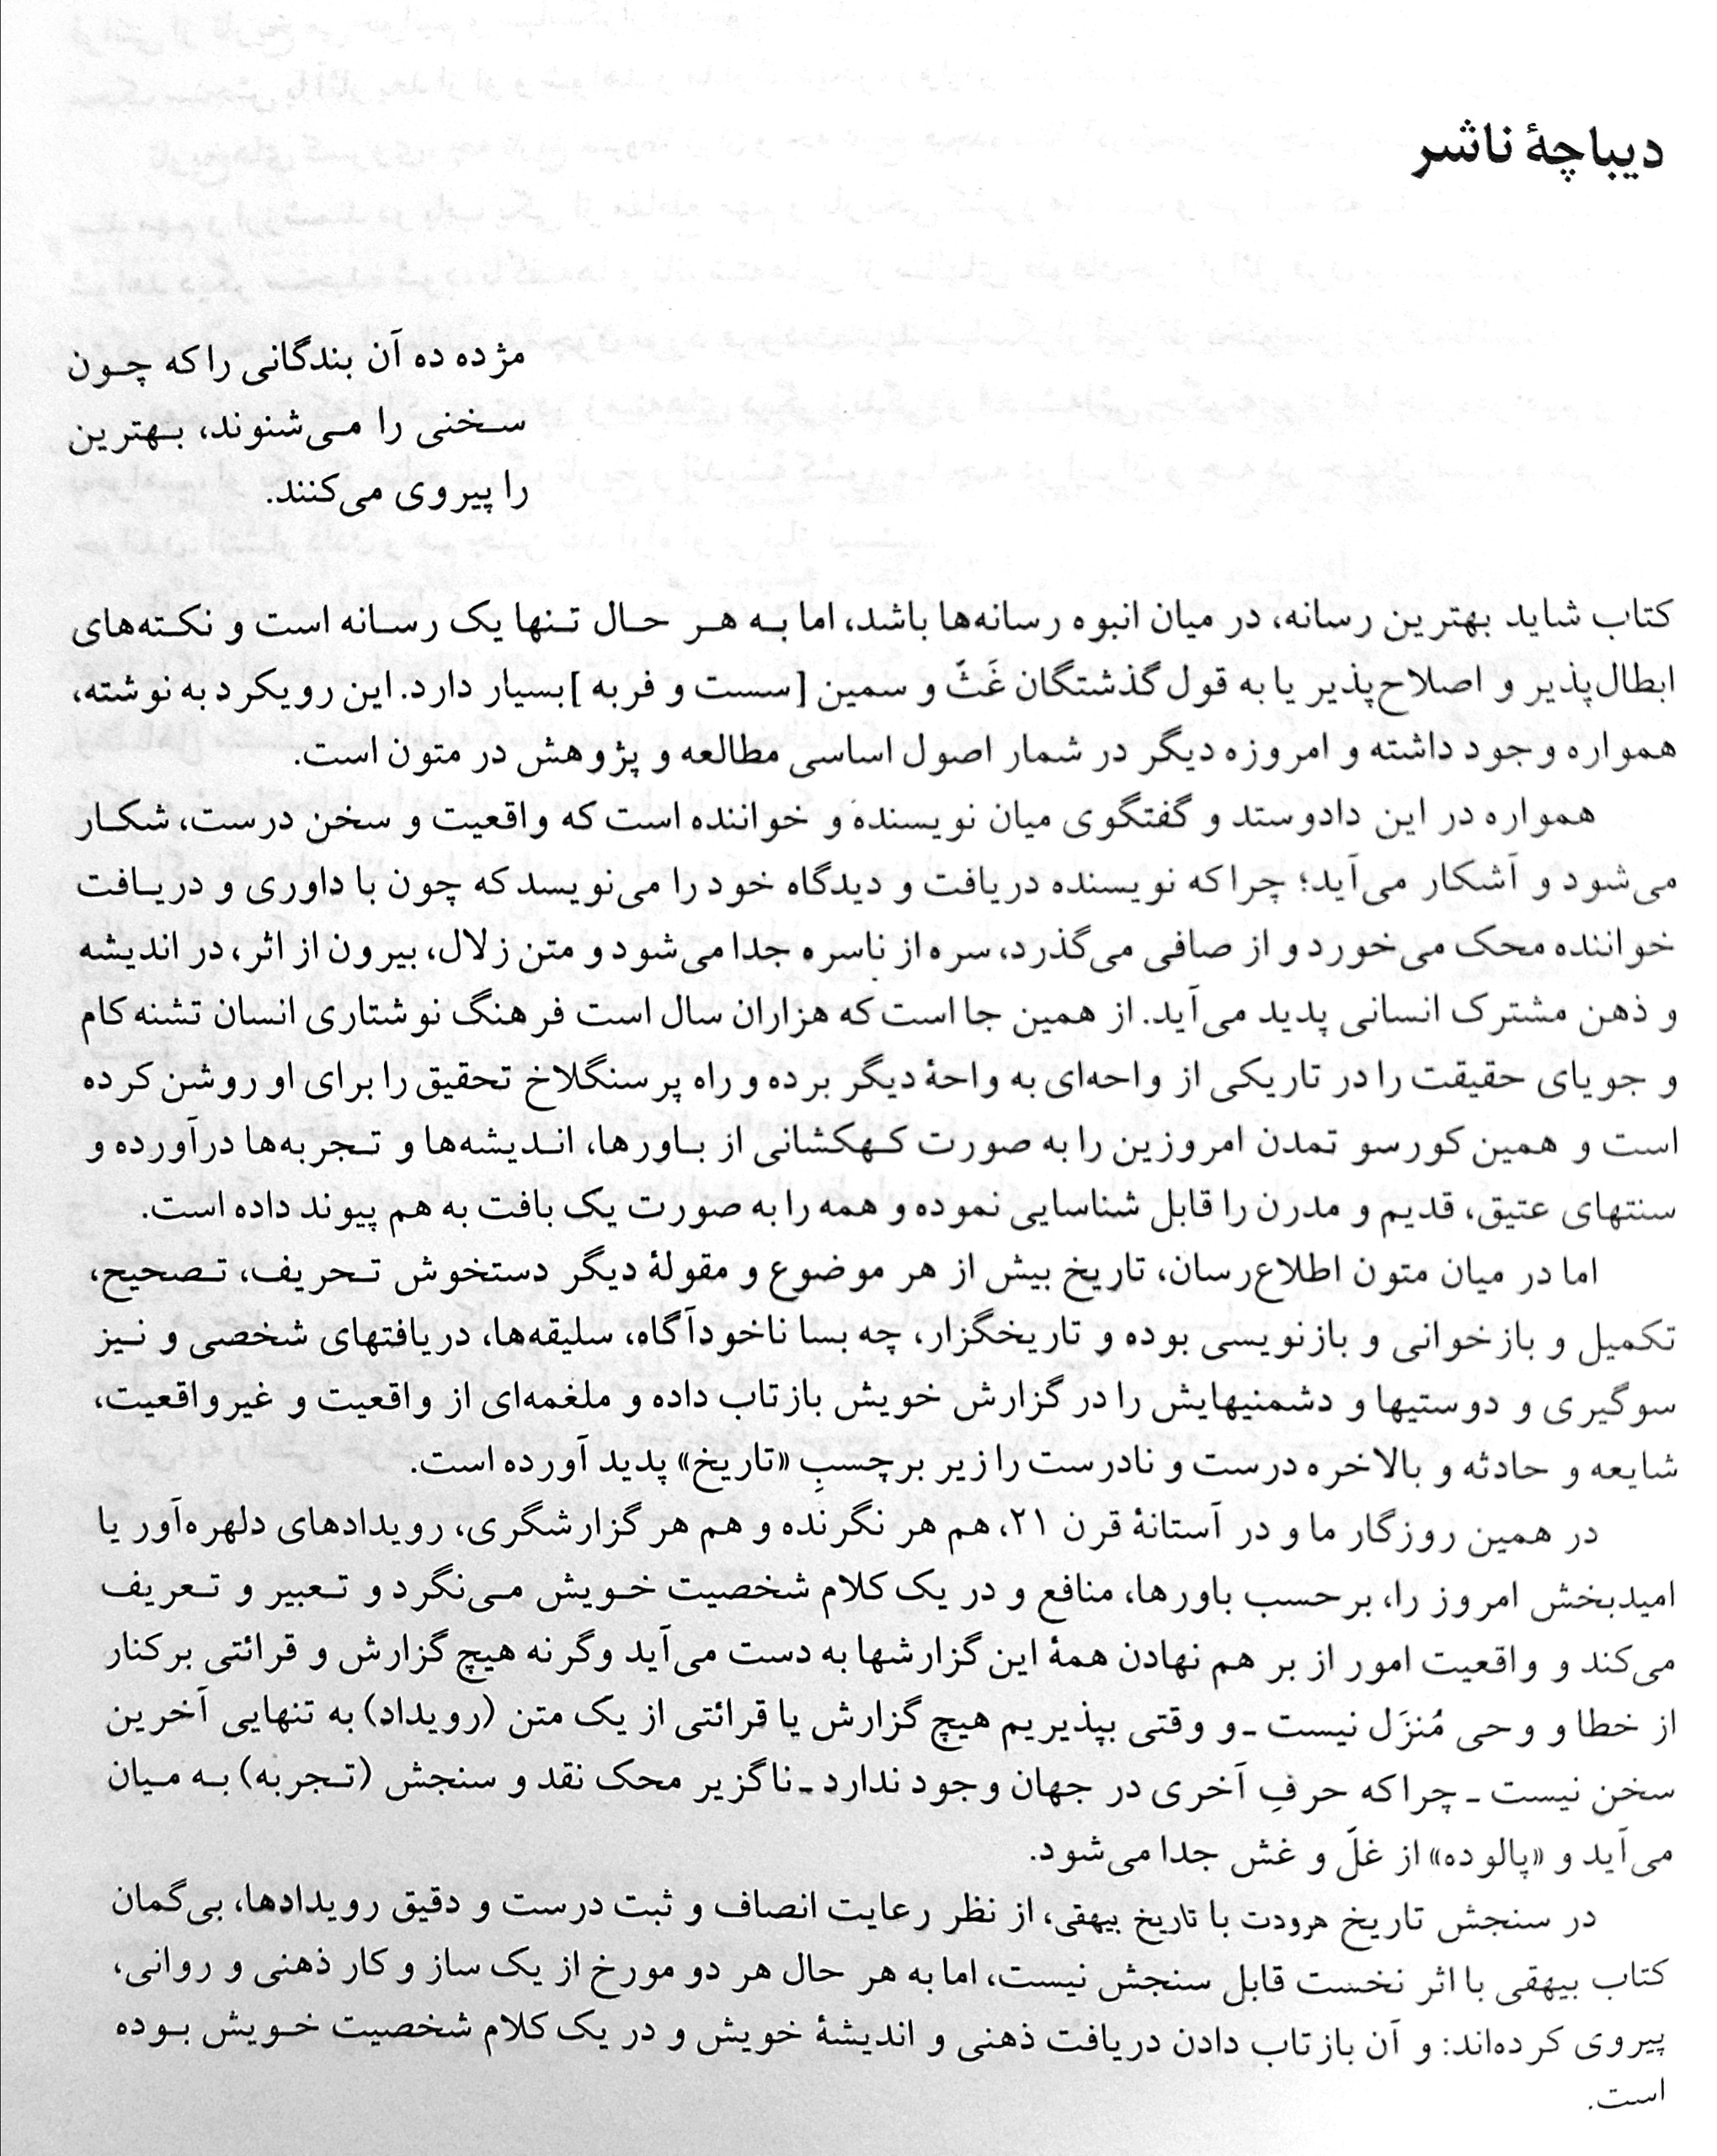 دیباچهٔ ناشر
مژده ده آن بندگانی را که چون
سخنی را می‌شنوند، بهترین
را پیروی می‌کنند.
کتاب شاید بهترین رسانه، در میان انبوه رسانه‌ها باشد، اما به هر حال تنها یک رسانه است و نکته‌های
ابطال‌پذیر و اصلاح‌پذیر یا به قول گذشتگان غَثّ و سمین [سست و فربه] بسیار دارد. این رویکرد به نوشته،
همواره وجود داشته و امروزه دیگر در شمار اصول اساسی مطالعه و پژوهش در متون است.
همواره در این دادوستد و گفتگوی میان نویسنده و خواننده است که واقعیت و سخن درست، شکار
می‌شود و آشکار می‌آید؛ چرا که نویسنده دریافت و دیدگاه خود را می‌نویسد که چون با داوری و دریافت
خواننده محک می‌خورد و از صافی می‌گذرد، سره از ناسره جدا می‌شود و متن زلال، بیرون از اثر، در اندیشه
و ذهن مشترک انسانی پدید می‌آید. از همین جا است که هزاران سال است فرهنگ نوشتاری انسان تشنه کام
و جویای حقیقت را در تاریکی از واحه‌ای به واحهٔ دیگر برده و راه پر سنگلاخ تحقیق را برای او روشن کرده
است و همین کورسو تمدن امروزین را به صورت کهکشانی از باورها، اندیشه‌ها و تجربه‌ها درآورده و
سنتهای عتیق، قدیم و مدرن را قابل شناسایی نموده و همه را به صورت یک بافت به هم پیوند داده است.
اما در میان متون اطلاع‌رسان، تاریخ بیش از هر موضوع و مقولهٔ دیگر دستخوش تحریف، تصحیح،
تکمیل و بازخوانی و بازنویسی بوده و تاریخگزار، چه بسا ناخودآگاه، سلیقه‌ها، دریافتهای شخصی و نیز
سوگیری و دوستیها و دشمنیهایش را در گزارش خویش بازتاب داده و ملغمه‌ای از واقعیت و غیرواقعیت،
شایعه و حادثه و بالاخره درست و نادرست را زیر برچسبِ «تاریخ» پدید آورده است.
در همین روزگار ما و در آستانهٔ قرن ۲۱، هم هر نگرنده و هم هر گزارشگری، رویدادهای دلهره‌آور یا
امیدبخش امروز را، برحسب باورها، منافع و در یک کلام شخصیت خویش می‌نگرد و تعبیر و تعریف
می‌کند و واقعیت امور از بر هم نهادن همهٔ این گزارشها به دست می‌آید وگرنه هیچ گزارش و قرائتی برکنار
از خطا و وحی مُنزَل نیست ـ و وقتی بپذیریم هیچ گزارش یا قرائتی از یک متن (رویداد) به تنهایی آخرین
سخن نیست ـ چرا که حرفِ آخری در جهان وجود ندارد ـ ناگزیر محک نقد و سنجش (تجربه) به میان
می‌آید و «پالوده» از غلّ و غش جدا می‌شود.
در سنجش تاریخ هرودت با تاریخ بیهقی، از نظر رعایت انصاف و ثبت درست و دقیق رویدادها، بی‌گمان
کتاب بیهقی با اثر نخست قابل سنجش نیست، اما به هر حال هر دو مورخ از یک ساز و کار ذهنی و روانی،
پیروی کرده‌اند: و آن بازتاب دادن دریافت ذهنی و اندیشهٔ خویش و در یک کلام شخصیت خویش بوده
است.